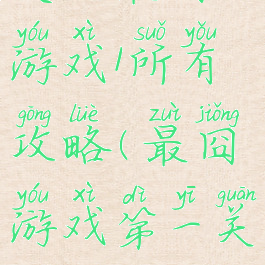 yóu xì suǒ yǒu
游戏/所有
gōng lüè zuì jiǒng
攻略(最囧
yóu xì dì yī guān
游戏第一关